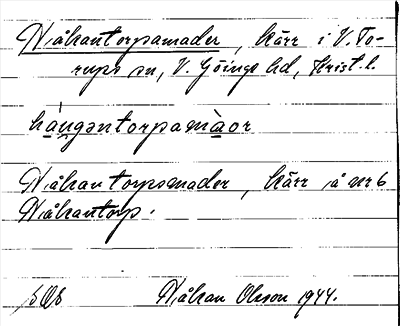 Håkantorpamader, kärr i V. To-
rups sn, V. Göinge hd, Krist. l.
hángəntorpamàor
Håkantorpamader, kärr å nr 6
Håkantorp.
Håkan Olsson 1944.